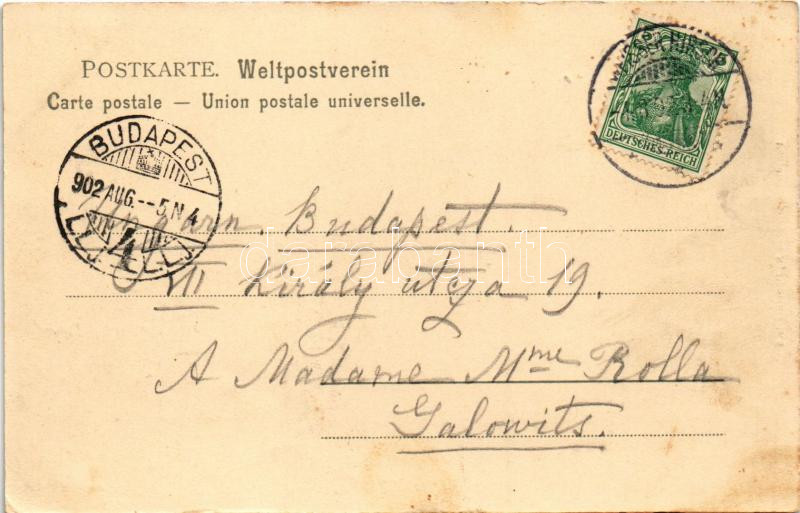 POSTKARTE. Weltpostverein
Carte postale — Union postale universelle.
DEUTSCHES REICH
BUDAPEST
902 AUG.--5.N 4
Ungarn. Budapest.
VII Király utcza 19.
A Madame Mme Rolla
Galowits.
darabanth